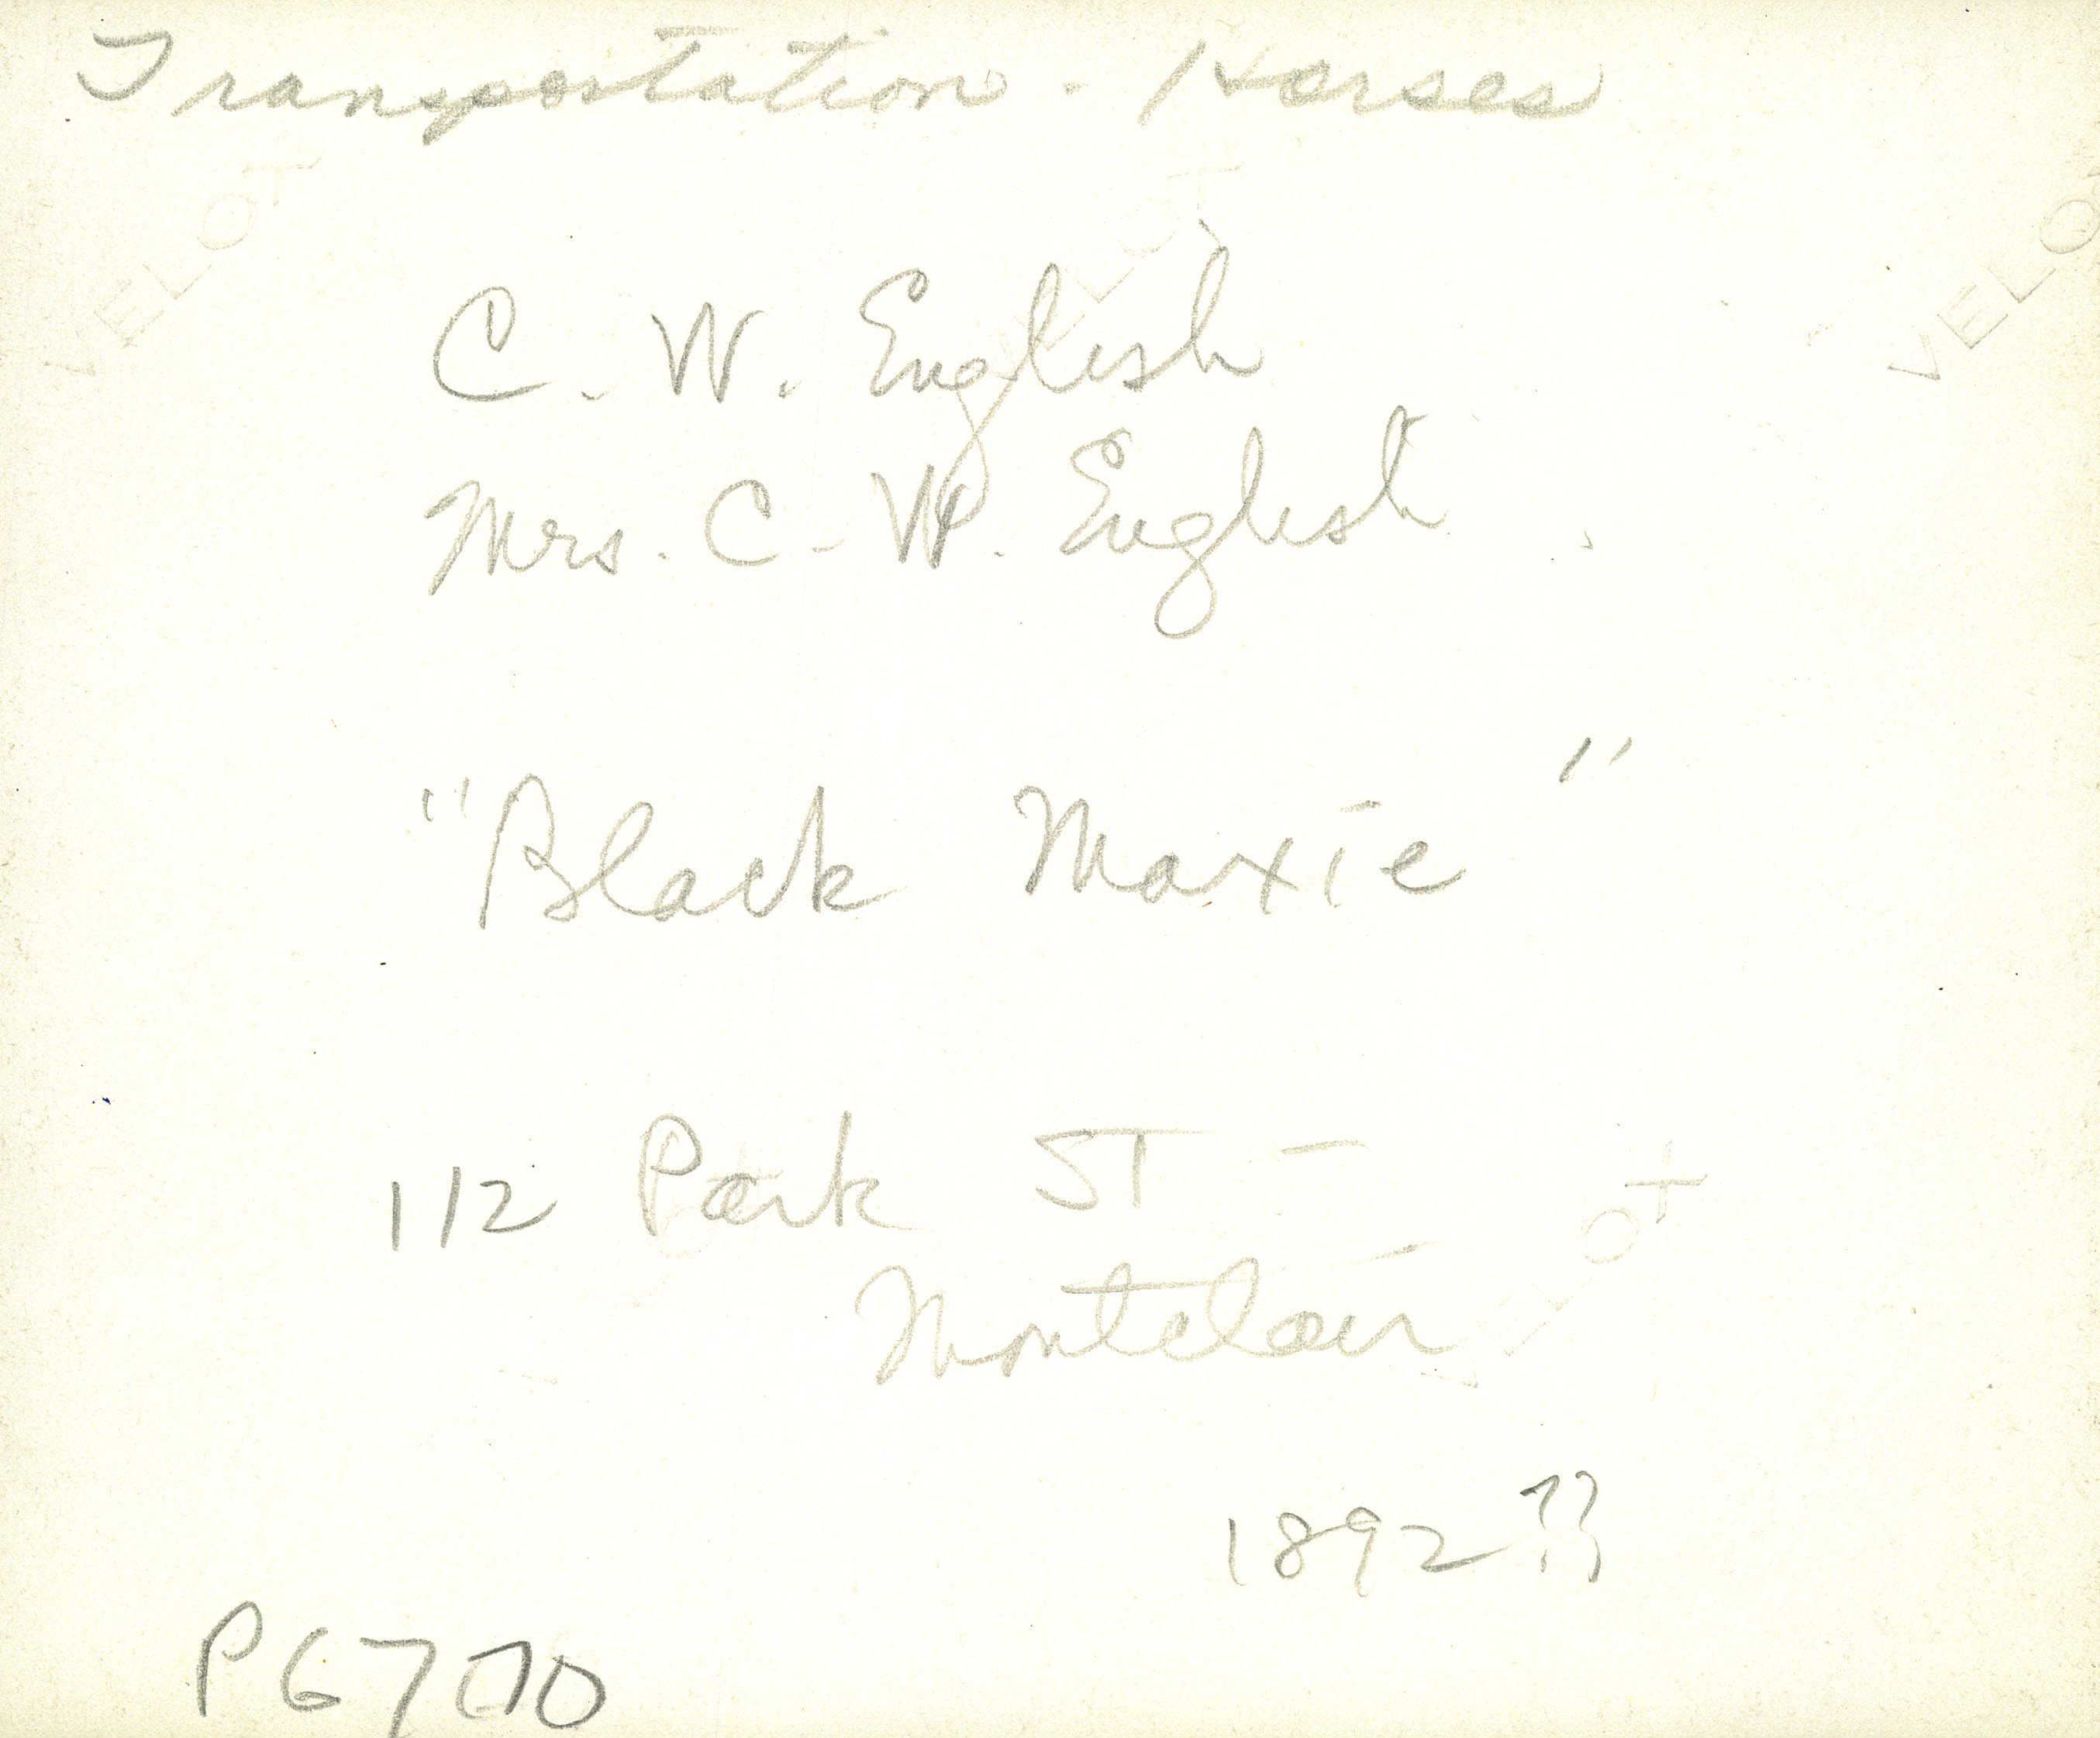 Transportation - Horses
C. W. English
Mrs. C. W. English
"Black Maxie"
112 Park ST -
Montclair
1892??
VELOX
VELOX
VELOX
VELOX